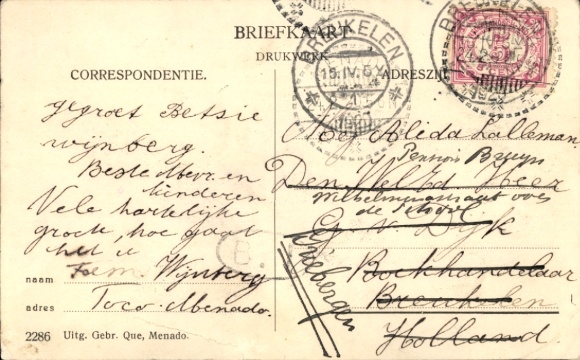 BRIEFKAART
DRUKWERK
CORRESPONDENTIE.
ADRESZIJ
BREUKELEN
15.IV.
BREUKELEN
5
gegroet Betsie
wijnberg.
Beste Mevr. en
kinderen
Vele hartelijke
groete, hoe gaat
het u
naam Fam. Wijnberg
adres Toco Menado.
B
2286 Uitg. Gebr. Que, Menado.
Alida Lalleman
Pension Bruyn
Den Wel Ed Heer
de
G. v. Dijk
Driebergen
Boekhandelaar
Breukelen
Holland